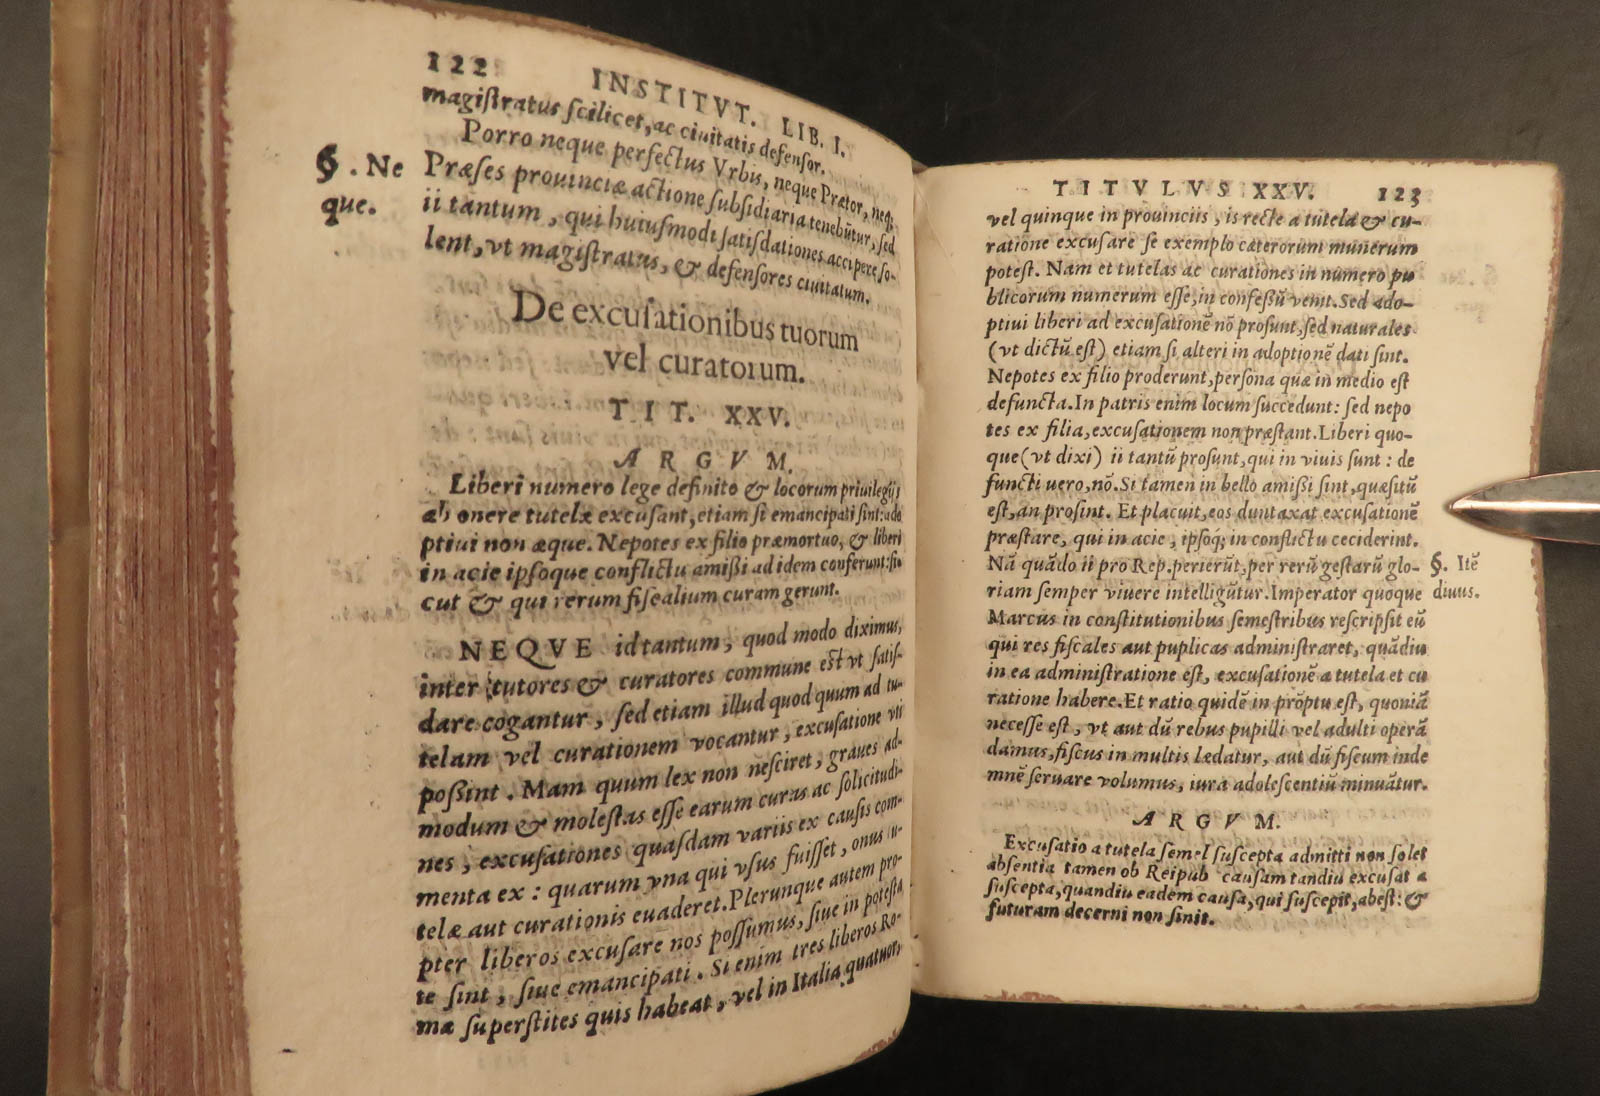 122 INSTITVT. LIB. I.
magiſtratus ſcilicet, ac ciuitatis defenſor.
Porro neque perfectus Vrbis, neque Prætor, neq;
§. Ne
que.
Præſes prouinciæ actione ſubſidiaria tenebūtur, ſed
ii tantum, qui huiuſmodi ſatiſdationes accipere ſo-
lent, vt magiſtratus, & defenſores ciuitatum.
De excuſationibus tuorum
vel curatorum.
TIT. XXV.
ARGVM.
Liberi numero lege definito & locorum priuilegijs
ab onere tutelæ excuſant, etiam ſi emancipati ſint: ado
ptiui non æque. Nepotes ex filio præmortuo, & liberi
in acie ipſoque conflictu amißi ad idem conferunt: ſi-
cut & qui rerum fiſcalium curam gerunt.
NEQVE id tantum, quod modo diximus,
inter tutores & curatores commune eſt vt ſatiſ-
dare cogantur, ſed etiam illud quod quum ad tu-
telam vel curationem vocantur, excuſatione vti
poßint. Mam quum lex non neſciret, graues ad-
modum & moleſtas eſſe earum curas ac ſolicitudi-
nes, excuſationes quaſdam variis ex cauſis com-
menta ex: quarum vna qui vſus fuiſſet, onus tu-
telæ aut curationis euaderet. Plerunque autem pro-
pter liberos excuſare nos poſſumus, ſiue in poteſta
te ſint, ſiue emancipati. Si enim tres liberos Ro-
mæ ſuperſtites quis habeat, vel in Italia quatuor,
TITVLVS XXV. 123
vel quinque in prouinciis, is recte a tutela & cu-
ratione excuſare ſe exemplo cæterorum munerum
poteſt. Nam et tutelas ac curationes in numero pu
blicorum numerum eſſe, in confeßū venit. Sed ado-
ptiui liberi ad excuſationē nō proſunt, ſed naturales
(vt dictū eſt) etiam ſi alteri in adoptionē dati ſint.
Nepotes ex filio proderunt, perſona quæ in medio eſt
defuncta. In patris enim locum ſuccedunt: ſed nepo
tes ex filia, excuſationem non præſtant. Liberi quo-
que (vt dixi) ii tantū proſunt, qui in viuis ſunt: de
functi uero, nō. Si tamen in bello amißi ſint, quæſitū
eſt, an proſint. Et placuit, eos duntaxat excuſationē
præſtare, qui in acie, ipſoq; in conflictu ceciderint.
Nā quādo ii pro Rep. perierūt, per rerū geſtarū glo-
§. Itē
diuus.
riam ſemper viuere intelligūtur. Imperator quoque
Marcus in conſtitutionibus ſemeſtribus reſcripſit eū
qui res fiſcales aut puplicas adminiſtraret, quādiu
in ea adminiſtratione eſt, excuſationē a tutela et cu
ratione habere. Et ratio quidē in prōptu eſt, quoniā
neceſſe eſt, vt aut dū rebus pupilli vel adulti operā
damus, fiſcus in multis lædatur, aut dū fiſcum inde
mnē ſeruare volumus, iura adoleſcentiū minuātur.
ARGVM.
Excuſatio a tutela ſemel ſuſcepta admitti non ſolet
abſentia tamen ob Reipub cauſam tandiu excuſat a
ſuſcepta, quandiu eadem cauſa, qui ſuſcepit, abeſt: &
futuram decerni non ſinit.